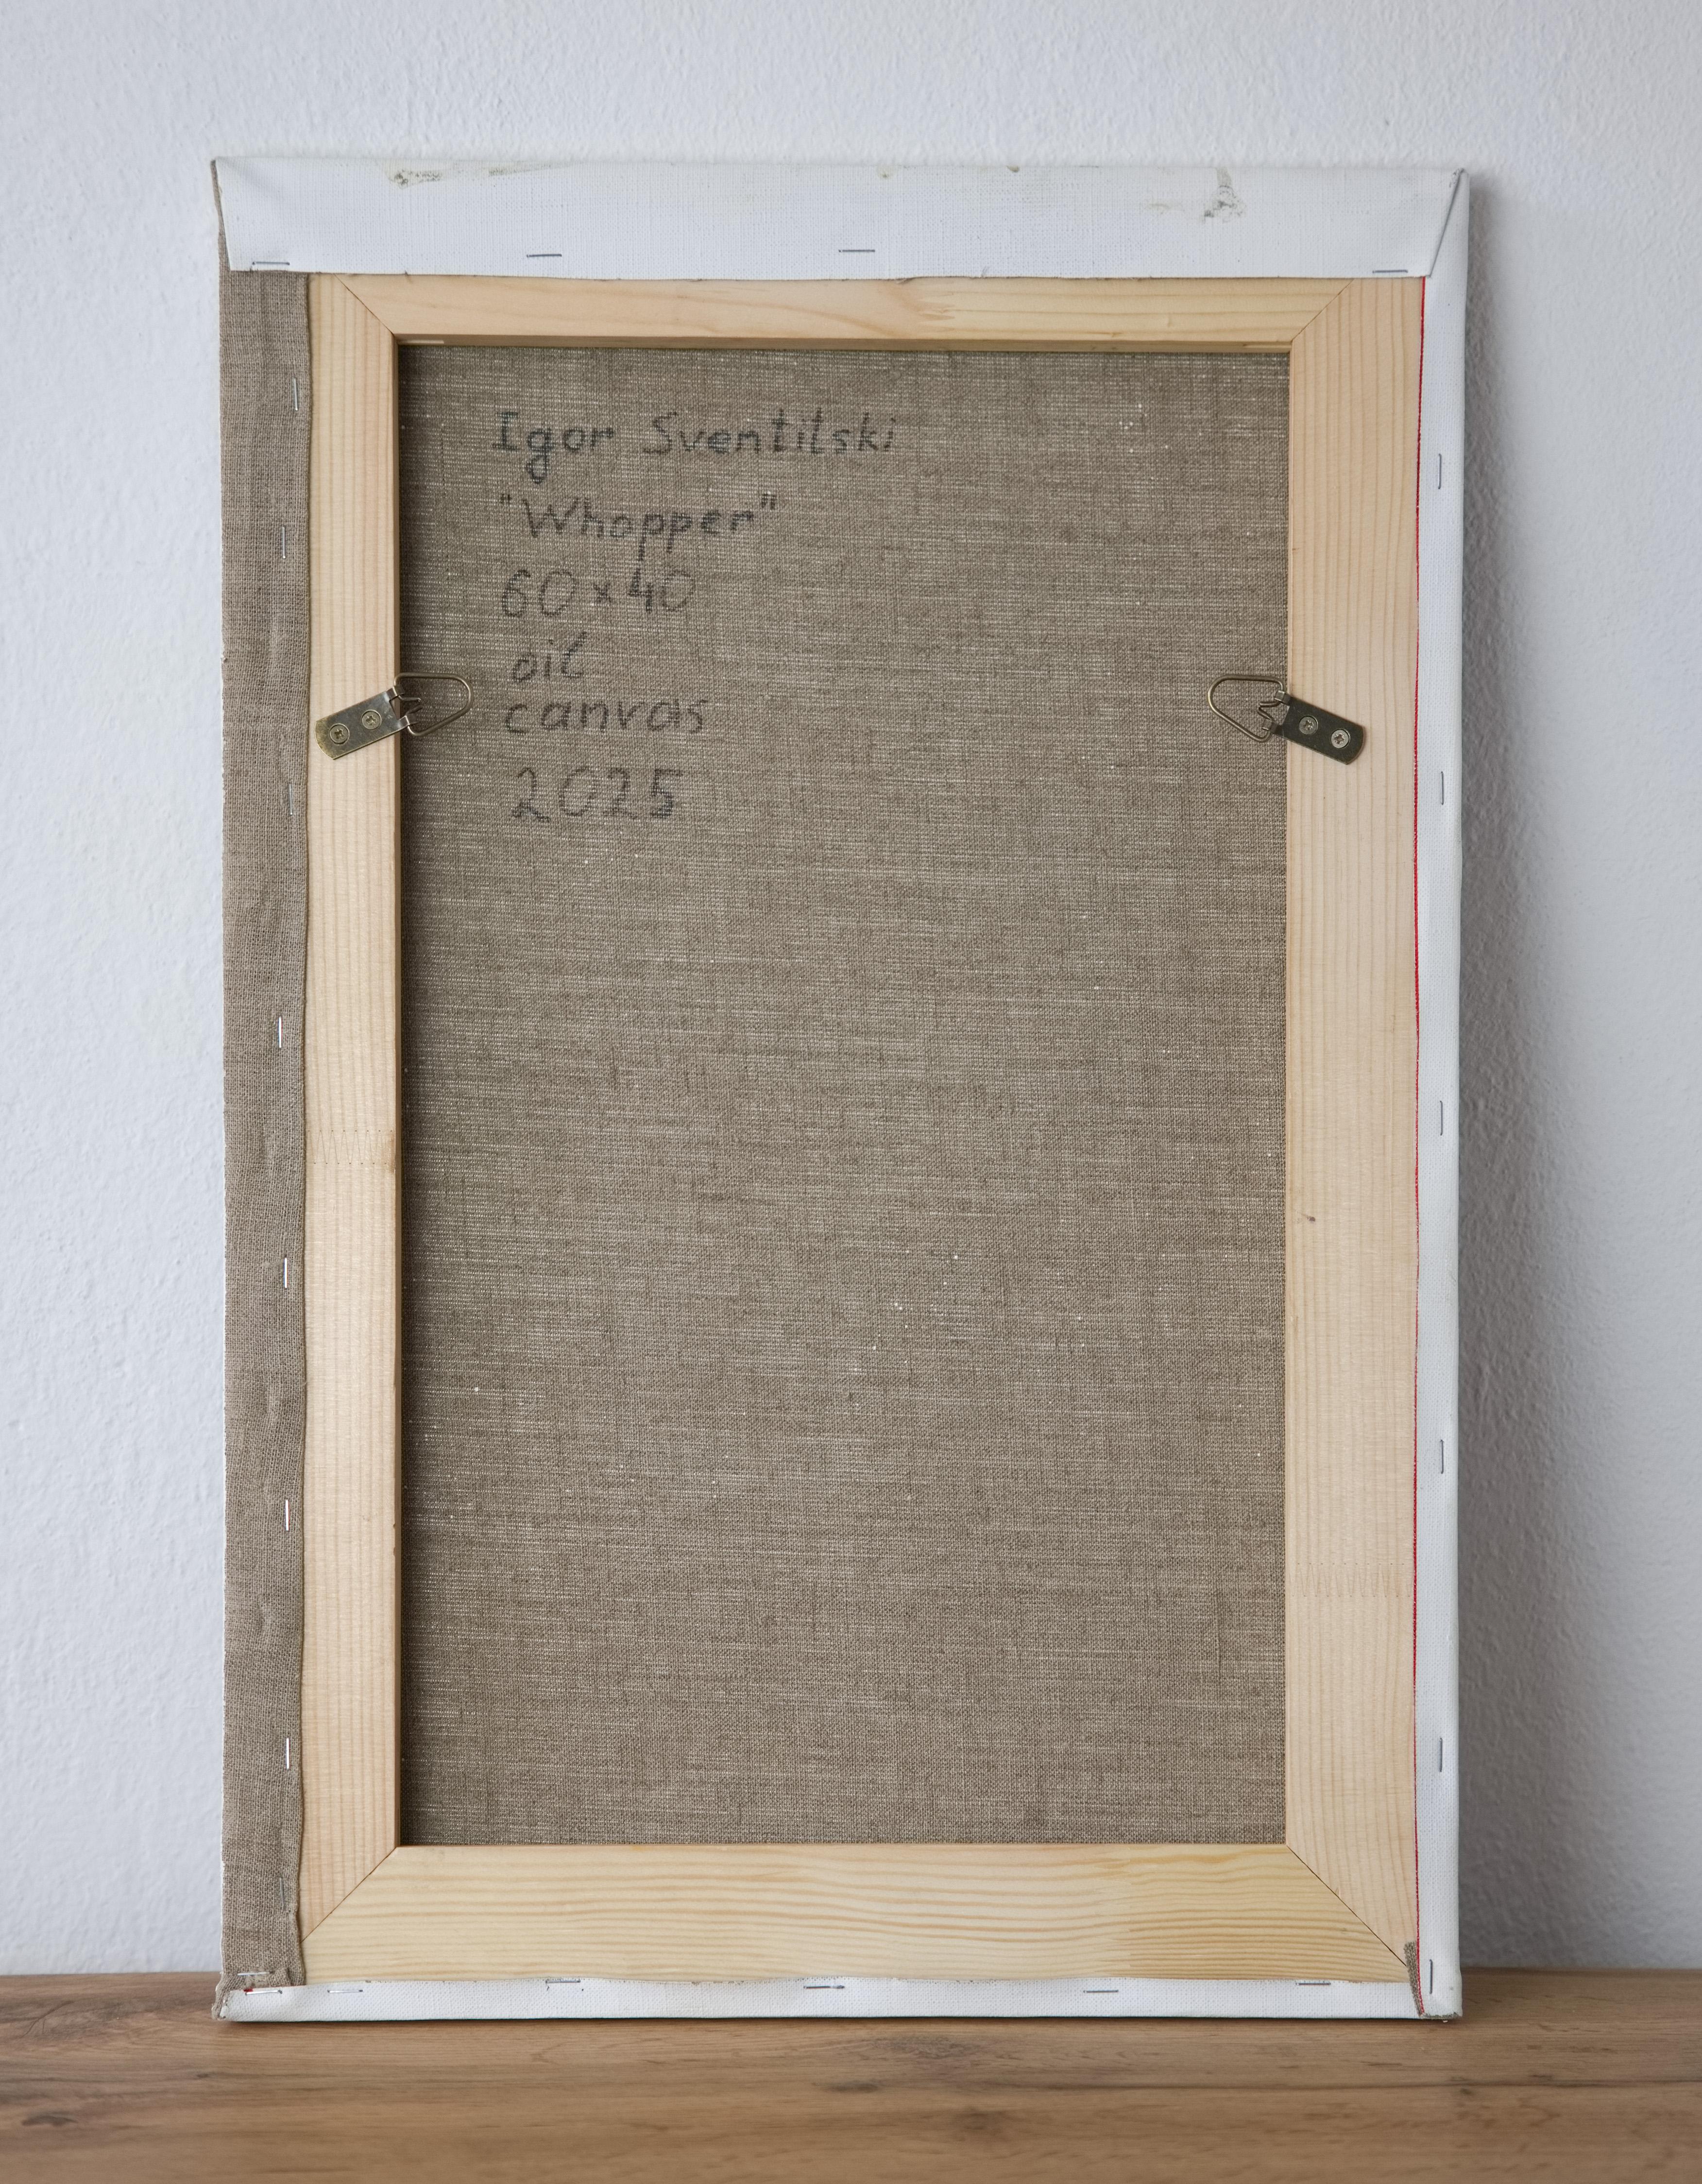 Igor Sventitski
"Whopper"
60x40
oil
canvas
2025